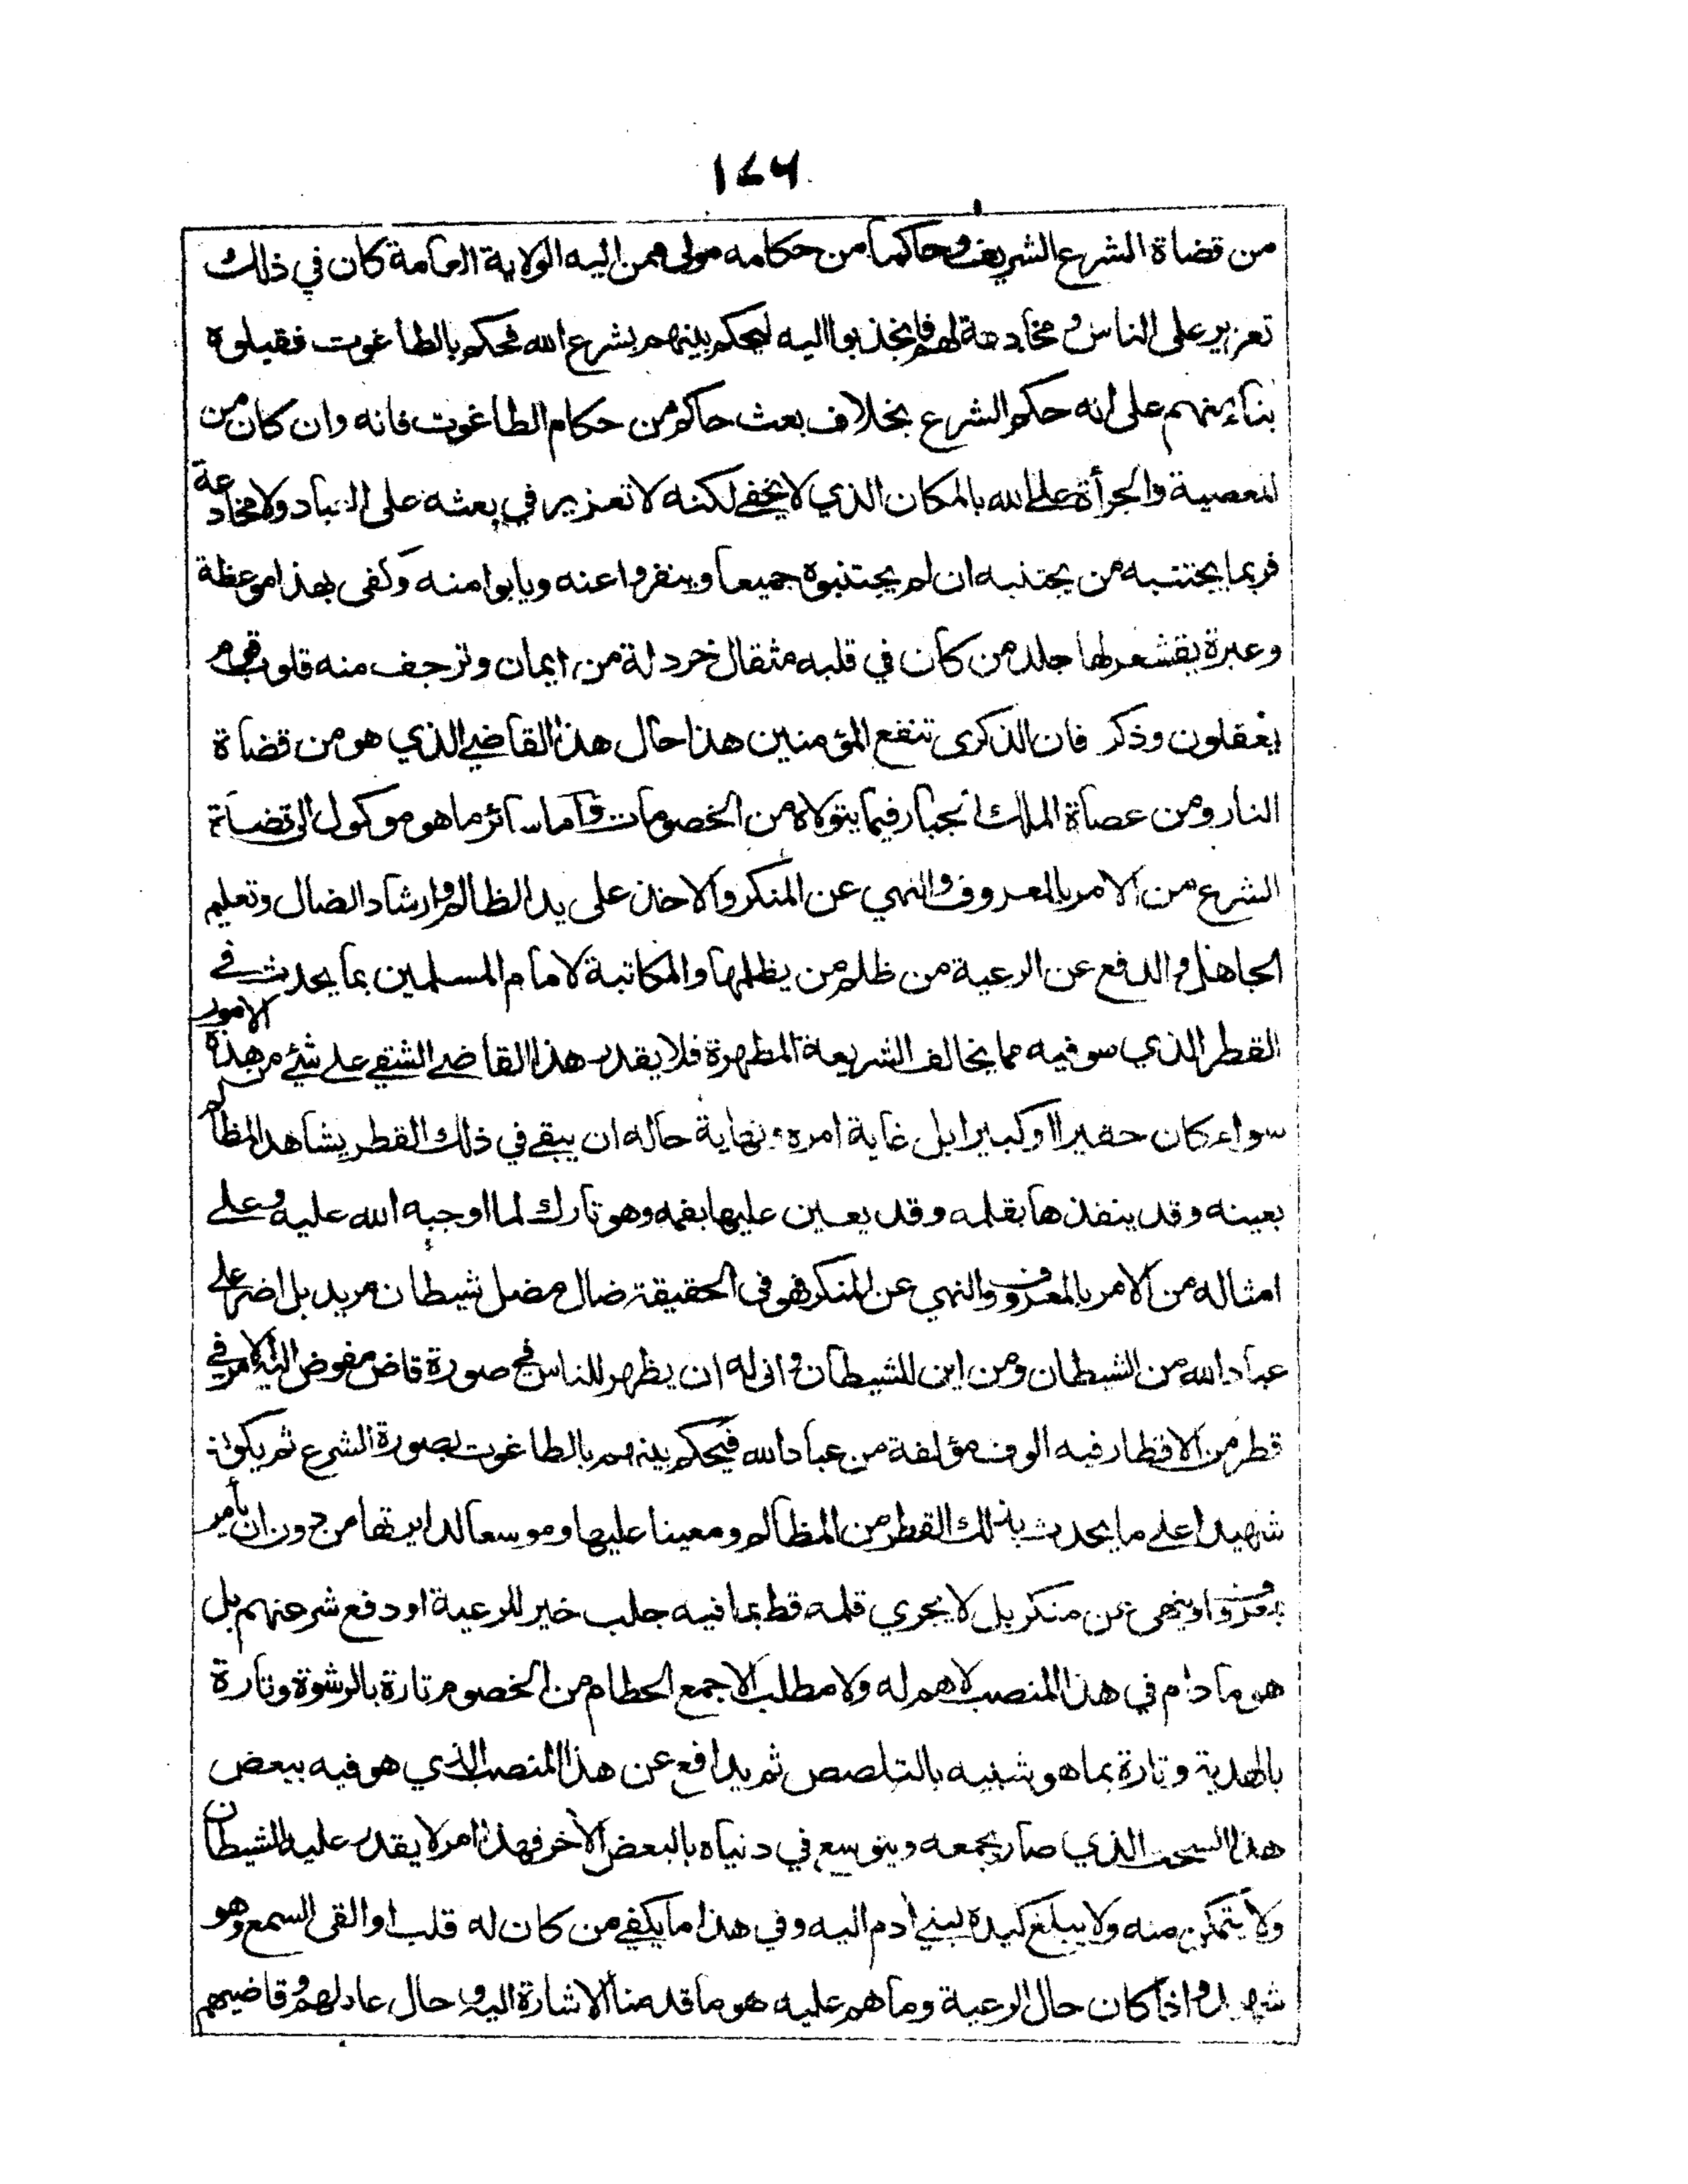 ١٧٦
من قضاة الشرع الشريف وحاكما من حكامه مولى ممن اليه الولاية العامة كان في ذلك
تعزير على الناس و مخادعة لهم فانجذبوا اليه ليحكم بينهم بشرع الله فحكم بالطاغوت فقبلوه
بناء منهم على انه حكم الشرع بخلاف بعث حاكم من حكام الطاغوت فانه وان كان من
المعصية والجرأة على الله بالمكان الذي لا يخفى لكنه لا تعزير في بعثه على العباد ولا مخادعة
فربما يجتنبه من يجتنبه ان لم يجتنبوه جميعا وينفروا عنه ويابوا منه وكفى بهذا موعظة
وعبرة يقشعر لها جلد من كان في قلبه مثقال خردلة من ايمان وترجف منه قلوب قوم
يعقلون وذكر فان الذكرى تنفع المؤمنين هذا حال هذا القاضي الذي هو من قضاة
النار ومن عصاة الملك الجبار فيما يتولاه من الخصومات واما سائر ما هو موكول الى قضاة
الشرع من الامر بالمعروف والنهي عن المنكر والاخذ على يد الظالم وارشاد الضال وتعليم
الجاهل والدفع عن الرعية من ظلم من يظلمها والمكاتبة لامام المسلمين بما يحدث في
القطر الذي هو فيه مما يخالف الشريعة المطهرة فلا يقدر هذا القاضي الشقي على شئ من هذه الامور
سواء كان حقيرا او كبيرا بل غاية امره ونهاية حاله ان يبقى في ذلك القطر يشاهد المظالم
بعينه وقد ينفذها بقلمه وقد يعين عليها بفمه وهو تارك لما اوجبه الله عليه وعلى
امثاله من الامر بالمعروف والنهي عن المنكر فهو في الحقيقة ضال مضل شيطان مريد بل اضر على
عباد الله من الشيطان ومن اين للشيطان وانى له ان يظهر للناس في صورة قاض مفوض اليه الامر في
قطر من الاقطار فيه الوف مؤلفة من عباد الله فيحكم بينهم بالطاغوت بصورة الشرع ثم يكون
شهيدا على ما يحدث بذلك القطر من المظالم ومعينا عليها وموسعا لدايرتها من دون ان يأمر
بمعروف او ينهى عن منكر بل لا يجري قلمه قط بما فيه جلب خير للرعية او دفع شر عنهم بل
هو ما دام في هذا المنصب لا هم له ولا مطلب الا جمع الحطام من الخصوم تارة بالرشوة وتارة
بالهدية وتارة بما هو شبيه بالتلصص ثم يدافع عن هذا المنصب الذي هو فيه ببعض
هذا السحت الذي صار يجمعه ويتوسع في دنياه بالبعض الآخر فهذا امر لا يقدر عليه الشيطان
ولا يتمكن منه ولا يبلغ كيده لبني آدم اليه وفي هذا ما يكفي من كان له قلب او القى السمع وهو
شهيد واذا كان حال الرعية وما هم عليه هو ما قدمنا الاشارة اليه وحال عادلهم وقاضيهم